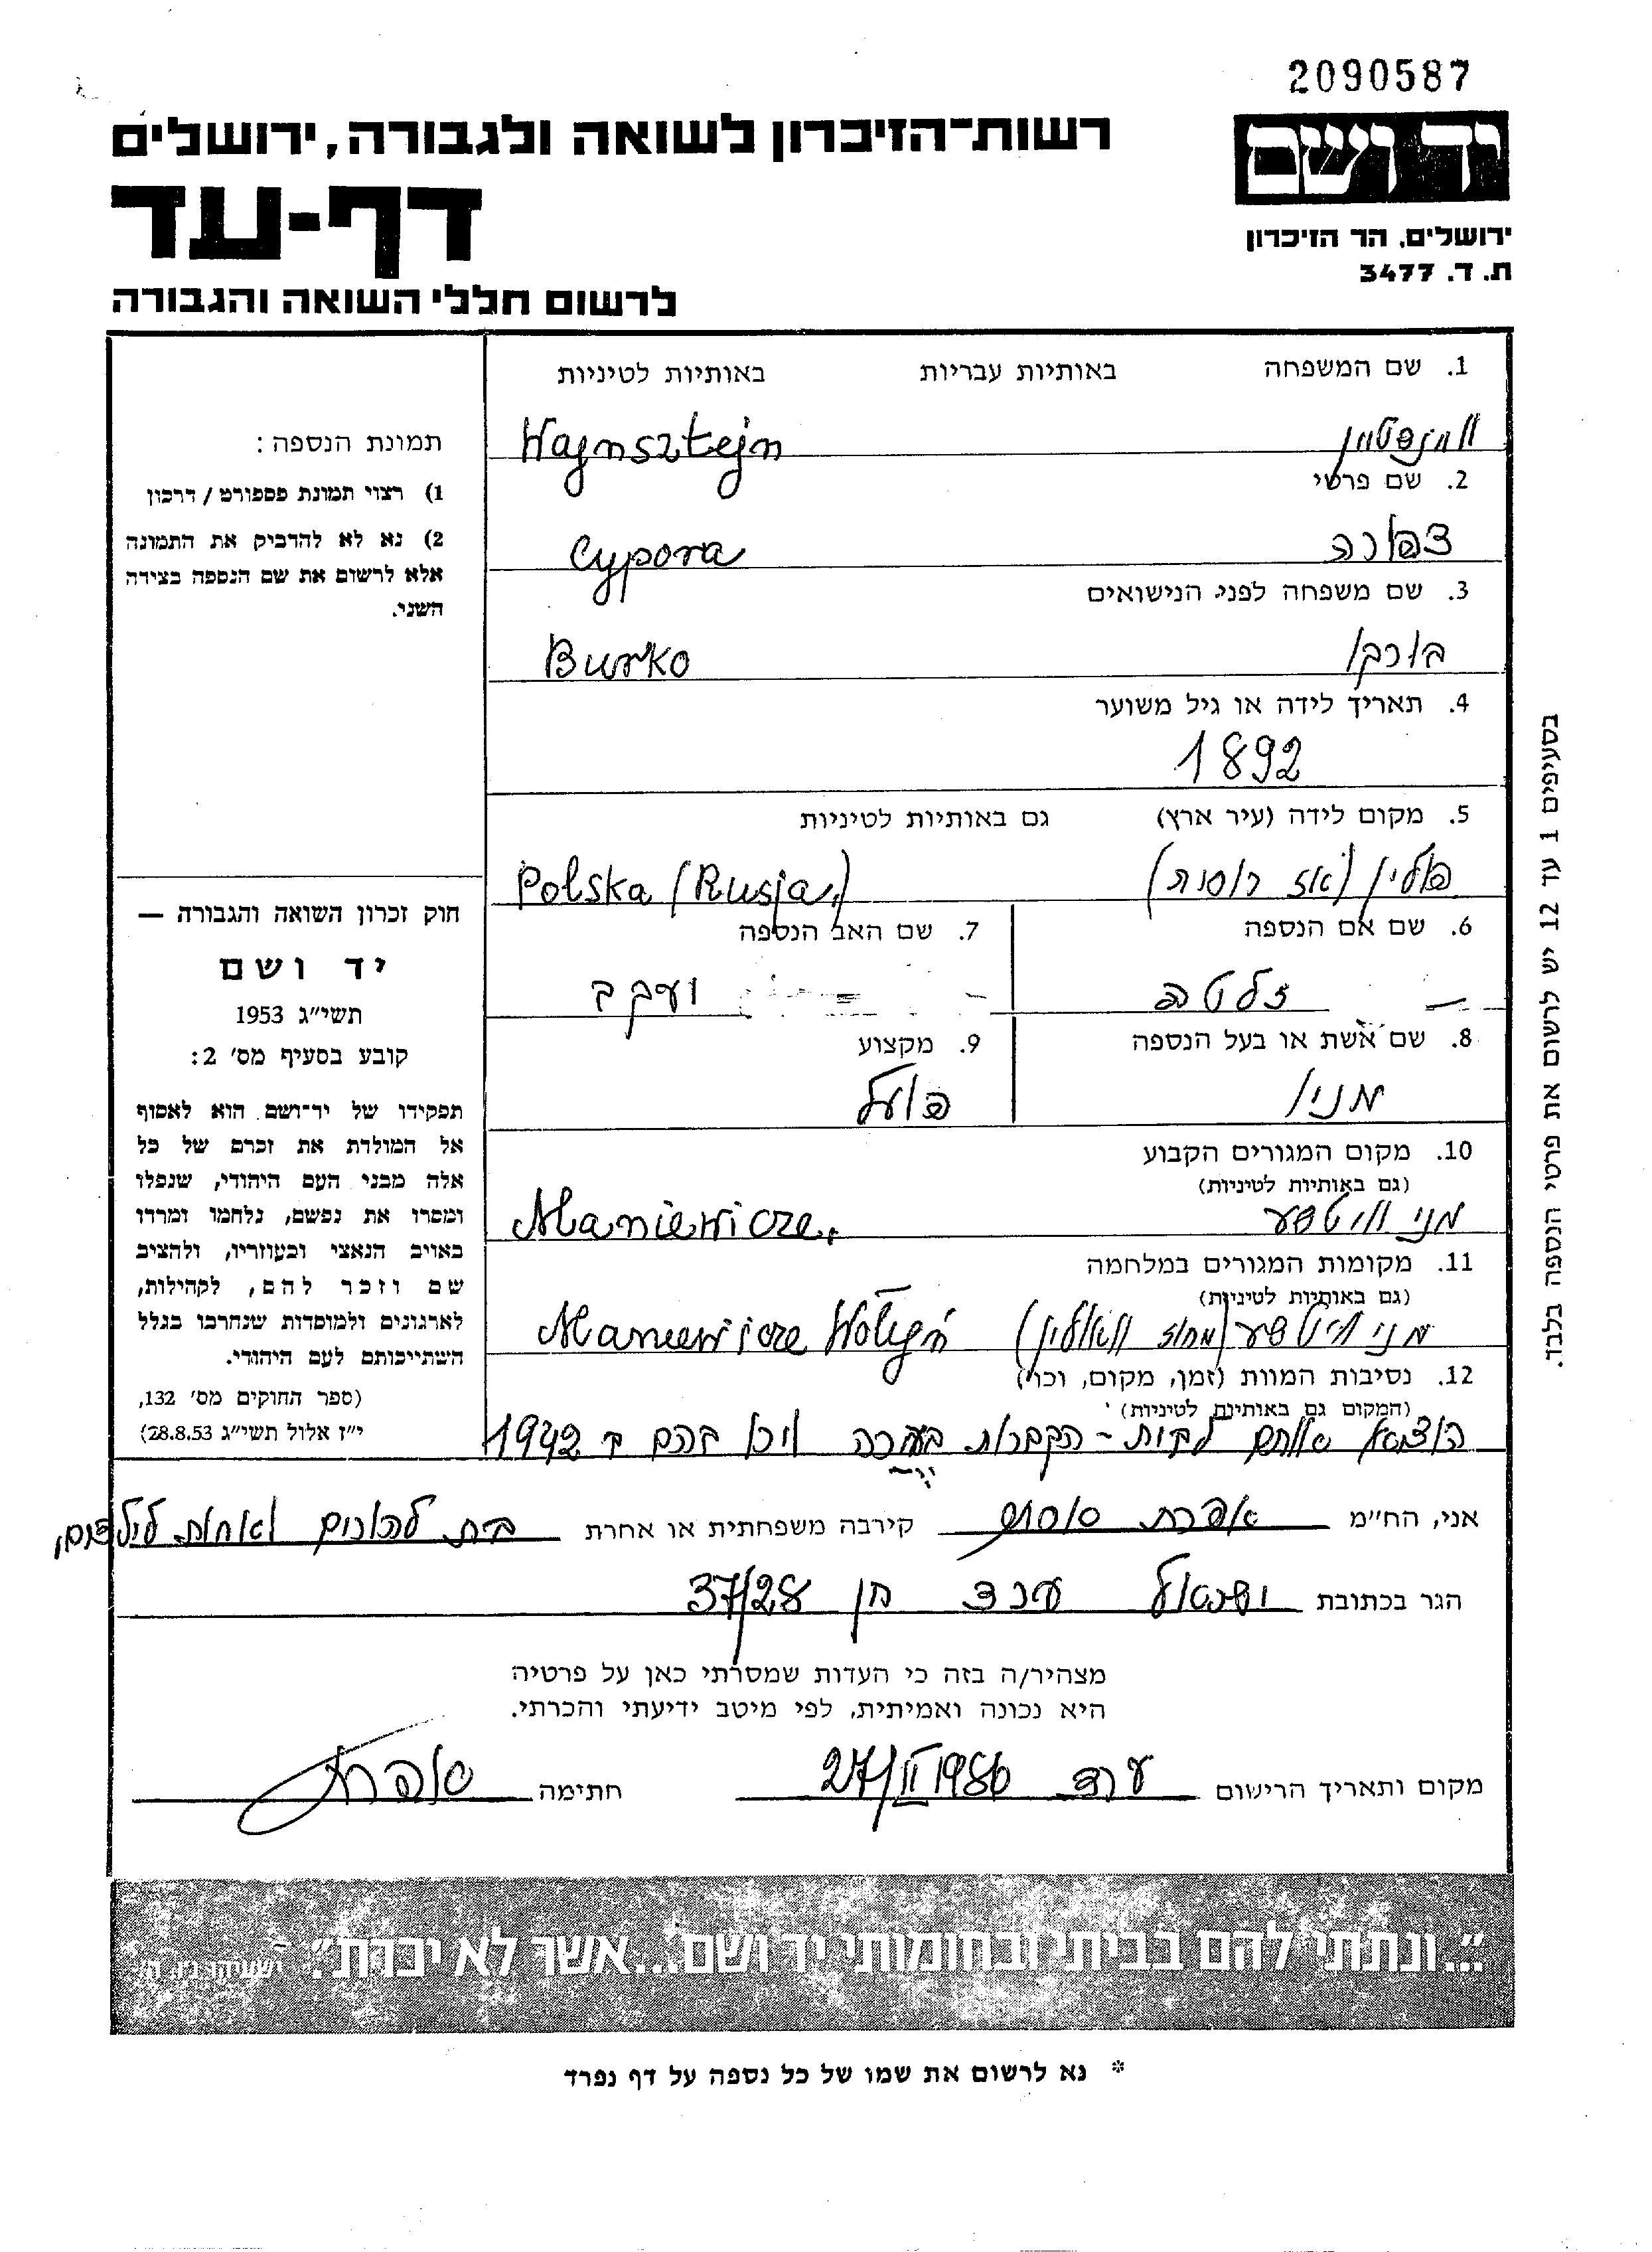 2090587
רשות־הזיכרון לשואה ולגבורה, ירושלים
יד ושם
דף-עד
ירושלים, הר הזיכרון
ת. ד. 3477
לרשום חללי השואה והגבורה
1. שם המשפחה באותיות עבריות באותיות לטיניות
ווינשטיין Wajnsztejn
2. שם פרטי
צפורה Cypora
3. שם משפחה לפני הנישואים
בורקו Burko
4. תאריך לידה או גיל משוער
1892
5. מקום לידה (עיר ארץ) גם באותיות לטיניות
פולין (אז רוסיה) Polska (Rusja)
6. שם אם הנספה 7. שם האב הנספה
זלטה יעקב
8. שם אשת או בעל הנספה 9. מקצוע
מניו פועל
10. מקום המגורים הקבוע
(גם באותיות לטיניות)
מניוויטשע Maniewicze
11. מקומות המגורים במלחמה
(גם באותיות לטיניות)
מניוויטשע (מחוז וואלין) Maniewicze Wołyń
12. נסיבות המוות (זמן, מקום, וכו')
(המקום גם באותיות לטיניות)
הוציאו אותם לבית-הקברות בעירה וירו בהם ב 1942
תמונת הנספה:
1) רצוי תמונת פספורט / דרכון
2) נא לא להדביק את התמונה
אלא לרשום את שם הנספה בצידה
השני.
חוק זכרון השואה והגבורה —
יד ושם
תשי״ג 1953
קובע בסעיף מס׳ 2:
תפקידו של יד־ושם הוא לאסוף
אל המולדת את זכרם של כל
אלה מבני העם היהודי, שנפלו
ומסרו את נפשם, נלחמו ומרדו
באויב הנאצי ובעוזריו, ולהציב
שם וזכר להם, לקהילות,
לארגונים ולמוסדות שנחרבו בגלל
השתייכותם לעם היהודי.
(ספר החוקים מס׳ 132,
י״ז אלול תשי״ג 28.8.53)
בסעיפים 1 עד 12 יש לרשום את פרטי הנספה בלבד.
אני, הח״מ אפרת קירבה משפחתית או אחרת בת להורים ואחות לילדים,
הגר בכתובת ישראל ערד חן 37/28
מצהיר/ה בזה כי העדות שמסרתי כאן על פרטיה
היא נכונה ואמיתית, לפי מיטב ידיעתי והכרתי.
מקום ותאריך הרישום ערד 27/II 1986 חתימה אפרת
״...ונתתי להם בביתי ובחומותי יד ושם...אשר לא יכרת״. ישעיהו נ״ו, ה׳
* נא לרשום את שמו של כל נספה על דף נפרד